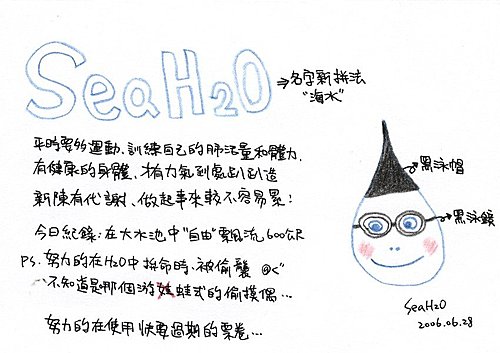 SeaH2O
→名字新拼法
"海水"
平時要做運動、訓練自己的肺活量和體力,
有健康的身體、才有力氣到處趴趴造
新陳有代謝、做起事來較不容易累!
→黑泳帽
→黑泳鏡
今日紀錄:在大水池中"自由"飄流600公尺
PS. 努力的在H2O中拚命時、被偷襲 @<"
不知道是那個游蛙式的偷摸偶...
努力的在使用快要過期的票卷...
SeaH2O
2006.06.28